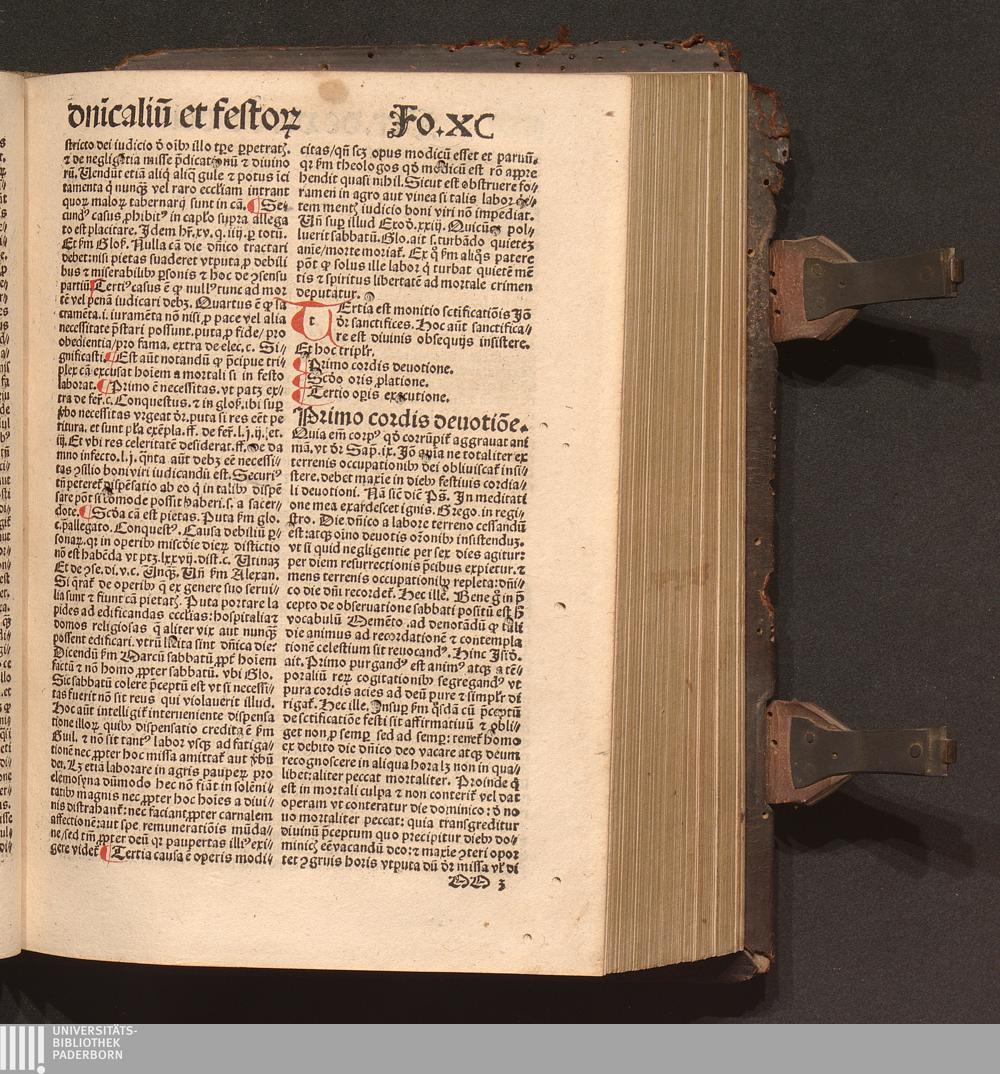 dn̄icaliū et festoꝝ
Fo.XC
stricto dei iudicio ꝺ oībꝫ illo tꝑe ꝑpetratꝫ.
⁊ de negligētia misse p̄dicationū ⁊ diuino
rū. Uendūt etiā aliq̄ aliq̄ gule ⁊ potus ici
tamenta q̄ nunqꝫ vel raro eccl̄iam intrant
quoꝝ maloꝝ tabernarij sunt in cā. ¶ Se⸗
cundꝰ casus ꝓhibitꝰ in cap̄lo supra allega
to est placitare. Idem hr̄.xv.q.iiij.ꝑ totū.
Et ẜm Glos̄. Nulla cā die dn̄ico tractari
debet: nisi pietas suaderet vtputa ꝓ debili
bus ⁊ miserabilibꝫ ꝑsonis ⁊ hoc de ꝯsensu
partiū. ¶ Tertiꝰ casus ē ꝙ nullꝰ tunc ad mor
tē vel penā iudicari debꝫ. Quartus ē ꝙ sa
cramēta.i. iuramēta nō nisi ꝓ pace vel alia
necessitate p̄stari possunt. puta ꝓ fide/ pro
obedientia/ pro fama. extra de elec. c. Si⸗
gnificasti. ¶ Est aūt notandū ꝙ p̄cipue tri⸗
plex cā excusat hoīem a mortali si in festo
laborat. ¶ Primo ē necessitas. vt patꝫ ex⸗
tra de fer̄. c. Conquestus. ⁊ in glos̄. ibi suꝑ
ꝟbo necessitas vrgeat ꝺr̄. puta si res eēt pe
ritura. et sunt pl̄a exēpla. ff. de fer̄. l.j.ij.⁊t.
iij. Et vbi res celeritatē desiderat. ff. de da
mno infecto. l.j. q̄nta aūt debꝫ eē necessi⸗
tas ꝯsilio boni viri iudicandū est. Securiꝰ
tn̄ peteret̄ dispēsatio ab eo q̄ in talibꝫ dispē
sare pōt si cōmode possit haberi. s. a sacer⸗
dote. ¶ Scd̄a cā est pietas. Puta ẜm glo.
c. p̄allegato. Conquestꝰ. Causa debiliū ꝑ⸗
sonaꝝ. qꝛ in operibꝫ misc̄die dieꝝ distictio
nō est habēda vt ptꝫ. lxxvij. dist. c. Utinaꝫ
Et de ꝯse. di. v. c. Unqꝫ. Un̄ ẜm Alexan.
Si q̄rat̄ de operibꝫ q̄ ex genere suo serui⸗
lia sunt ⁊ fiunt cā pietatꝫ. Puta portare la
pides ad edificandas ecclias: hospitalia ⁊
domos religiosas q̄ aliter vix aut nunqꝫ
possent edificari. vtrū licita sint dn̄ica die?
Dicendū ẜm Marcū sabbatū ꝓpt̄ hoīem
factū ⁊ nō homo ꝓpter sabbatū. vbi Glo.
Sic sabbatū colere p̄ceptū est vt si necessi⸗
tas fuerit nō sit reus qui violauerit illud.
Hoc aūt intelligit̄ interueniente dispensa
tione illoꝝ quibꝫ dispensatio credita ē ẜm
Guil. ⁊ nō sit tantꝰ labor vsqꝫ ad fatiga⸗
tionē nec ꝓpter hoc missa amittat̄ aut ꝟbū
dei. Lꝫ etiā laborare in agris pauperꝝ pro
elemosyna dūmodo hec nō fiāt in solēni⸗
tatibꝫ magnis nec ꝓpter hoc hoīes a diui⸗
nis distrahant̄: nec faciant ꝓpter carnalem
affectionē: aut spe remuneratiōis mūda⸗
ne/ sed tm̄ ꝓpter deū qꝛ paupertas illiꝰ exi⸗
gere videt̄ ¶ Tertia causa ē operis modi⸗
citas/ qn̄ scꝫ opus modicū esset et paruū.
qꝛ ẜm theologos qd̄ modicū est rō appre
hendit quasi nihil. Sicut est obstruere fo⸗
ramen in agro aut vinea si talis labor
tem mentꝫ iudicio boni viri nō impediat.
Un̄ suꝑ illud Exod̄.xxiij. Quicūqꝫ pol⸗
luerit sabbatū. Glo. ait s. turbādo quietez
anīe/ morte moriat̄. Ex q̄ ẜm aliq̄s patere
pōt ꝙ solus ille labor q̄ turbat quietē mē
tis ⁊ spiritus libertatē ad mortale crimen
deputatur.
Tertia est monitio sctificatiōis Jō
ꝺr̄ sanctifices. Hoc aūt sanctifica⸗
re est diuinis obsequijs insistere.
Et hoc triplr̄.
¶ Primo cordis deuotione.
¶ Scd̄o oris ꝓlatione.
¶ Tertio oꝑis executione.
Primo cordis deuotiōe.
Quia em̄ corpꝰ qd̄ corrūpit̄ aggrauat ani
mā. vt ꝺr̄ Sap̄.ix. Jō anīa ne totaliter ex
terrenis occupationibꝫ dei obliuiscat̄ insi⸗
stere. debet maxīe in diebꝫ festiuis cordia⸗
li deuotioni. Nā sic̄ dic̄ Pṡ. In meditati
one mea exardescet ignis. Grego. in regi⸗
stro. Die dn̄ico a labore terreno cessandū
est: atqꝫ oīno deuotis oīonibꝫ insistenduꝫ.
vt si quid negligentie per sex dies agitur:
per diem resurrectionis p̄cibus expietur. ⁊
mens terrenis occupationibꝫ repleta: dn̄i⸗
co die dn̄i recordet̄. Hec ille. Bene ḡ in p̄
cepto de obseruatione sabbati positū est ħ
vocabulū Memēto. ad denotādū ꝙ tali
die animus ad recordationē ⁊ contempla
tionē celestium sit reuocandꝰ. Hinc Jsid̄.
ait. Primo purgandꝰ est animꝰ atqꝫ a tē⸗
poraliū reꝝ cogitationibꝫ segregandꝰ vt
pura cordis acies ad deū pure ⁊ simplr̄ di
rigat̄. Hec ille. Insuꝑ ẜm q̄sdā cū p̄ceptū
de sctificatiōe festi sit affirmatiuū ⁊ obli⸗
get non ꝓ semꝑ sed ad semper: tenet̄ homo
ex debito die dn̄ico deo vacare atqꝫ deum
recognoscere in aliqua hora lꝫ non in qua⸗
libet: aliter peccat mortaliter. Proinde q̄
est in mortali culpa ⁊ non conterit̄ vel dat
operam vt conteratur die dominico: ꝺ no
uo mortaliter peccat: quia transgreditur
diuinū p̄ceptum quo precipitur diebꝫ do⸗
minicꝫ eē vacandū deo: ⁊ maxīe ꝯteri opor
tet ꝯgruis horis vtputa dū ꝺr̄ missa vl̄ di
3
UNIVERSITÄTS-
BIBLIOTHEK
PADERBORN